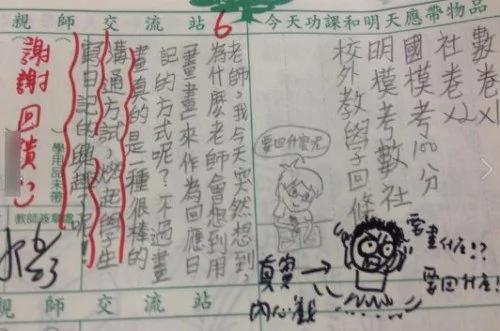 今天功課和明天應帶物品
數卷x1
社卷x2
國模考100分
明模考數、社
校外教學回條
要回什麼呢
要畫什麼!?
要回什麼!
真實→
內心戲
親師交流站
6
老師,我今天突然想到,
為什麼老師會想到用
「畫畫」來作為回應日
記的方式呢?不過畫
畫真的是一種很棒的
溝通方式,燃起學生
寫日記的興趣了呢!
謝謝回饋:)
學用品未帶
親師交流站